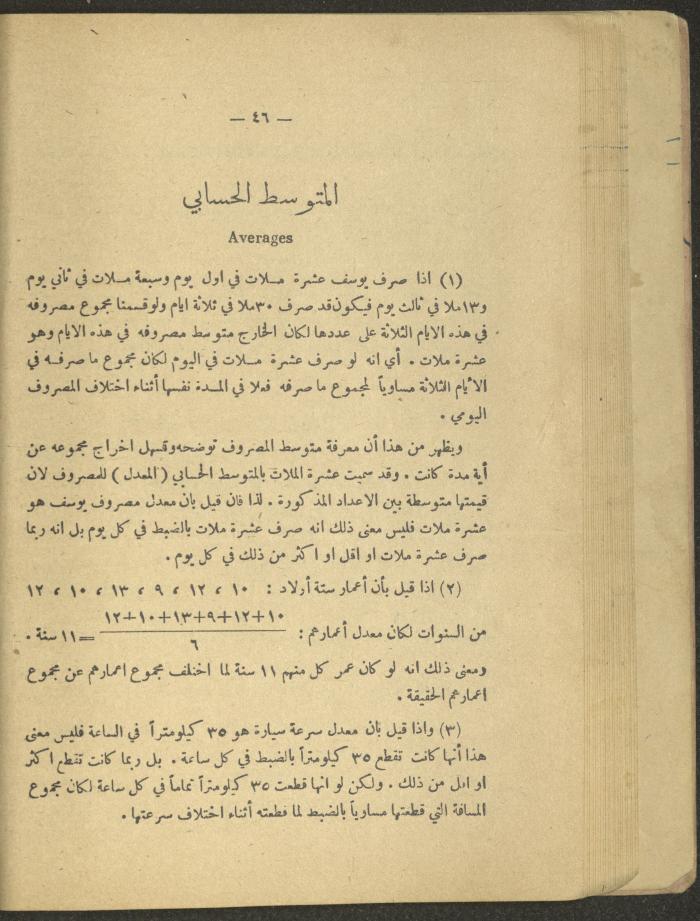 — ٤٦ —
المتوسط الحسابي
Averages
(١) اذا صرف يوسف عشرة ملات في اول يوم وسبعة ملات في ثاني يوم
و١٣ملا في ثالث يوم فيكون قد صرف ٣٠ملا في ثلاثة ايام ولو قسمنا مجموع مصروفه
في هذه الايام الثلاثة على عددها لكان الخارج متوسط مصروفه في هذه الايام وهو
عشرة ملات . أي انه لو صرف عشرة ملات في اليوم لكان مجموع ما صرفه في
الأيام الثلاثة مساوياً لمجموع ما صرفه فعلا في المدة نفسها أثناء اختلاف المصروف
اليومي .
ويظهر من هذا أن معرفة متوسط المصروف توضحه وتسهل اخراج مجموعه عن
أية مدة كانت . وقد سميت عشرة الملات بالمتوسط الحسابي ( المعدل ) للمصروف لان
قيمتها متوسطة بين الاعداد المذكورة . لذا فان قيل بان معدل مصروف يوسف هو
عشرة ملات فليس معنى ذلك انه صرف عشرة ملات بالضبط في كل يوم بل انه ربما
صرف عشرة ملات او اقل او اكثر من ذلك في كل يوم .
(٢) اذا قيل بأن أعمار ستة أولاد : ١٠ ، ١٢ ، ٩ ، ١٣ ، ١٠ ، ١٢
من السنوات لكان معدل أعمارهم : ١٠+١٢+٩+١٣+١٠+١٢ / ٦ = ١١ سنة .
ومعنى ذلك انه لو كان عمر كل منهم ١١ سنة لما اختلف مجموع اعمارهم عن مجموع
اعمارهم الحقيقة .
(٣) واذا قيل بان معدل سرعة سيارة هو ٣٥ كيلومتراً في الساعة فليس معنى
هذا أنها كانت تقطع ٣٥ كيلومتراً بالضبط في كل ساعة . بل ربما كانت تقطع اكثر
او اقل من ذلك . ولكن لو انها قطعت ٣٥ كيلومتراً تماماً في كل ساعة لكان مجموع
المسافة التي قطعتها مساوياً بالضبط لما قطعته أثناء اختلاف سرعتها .